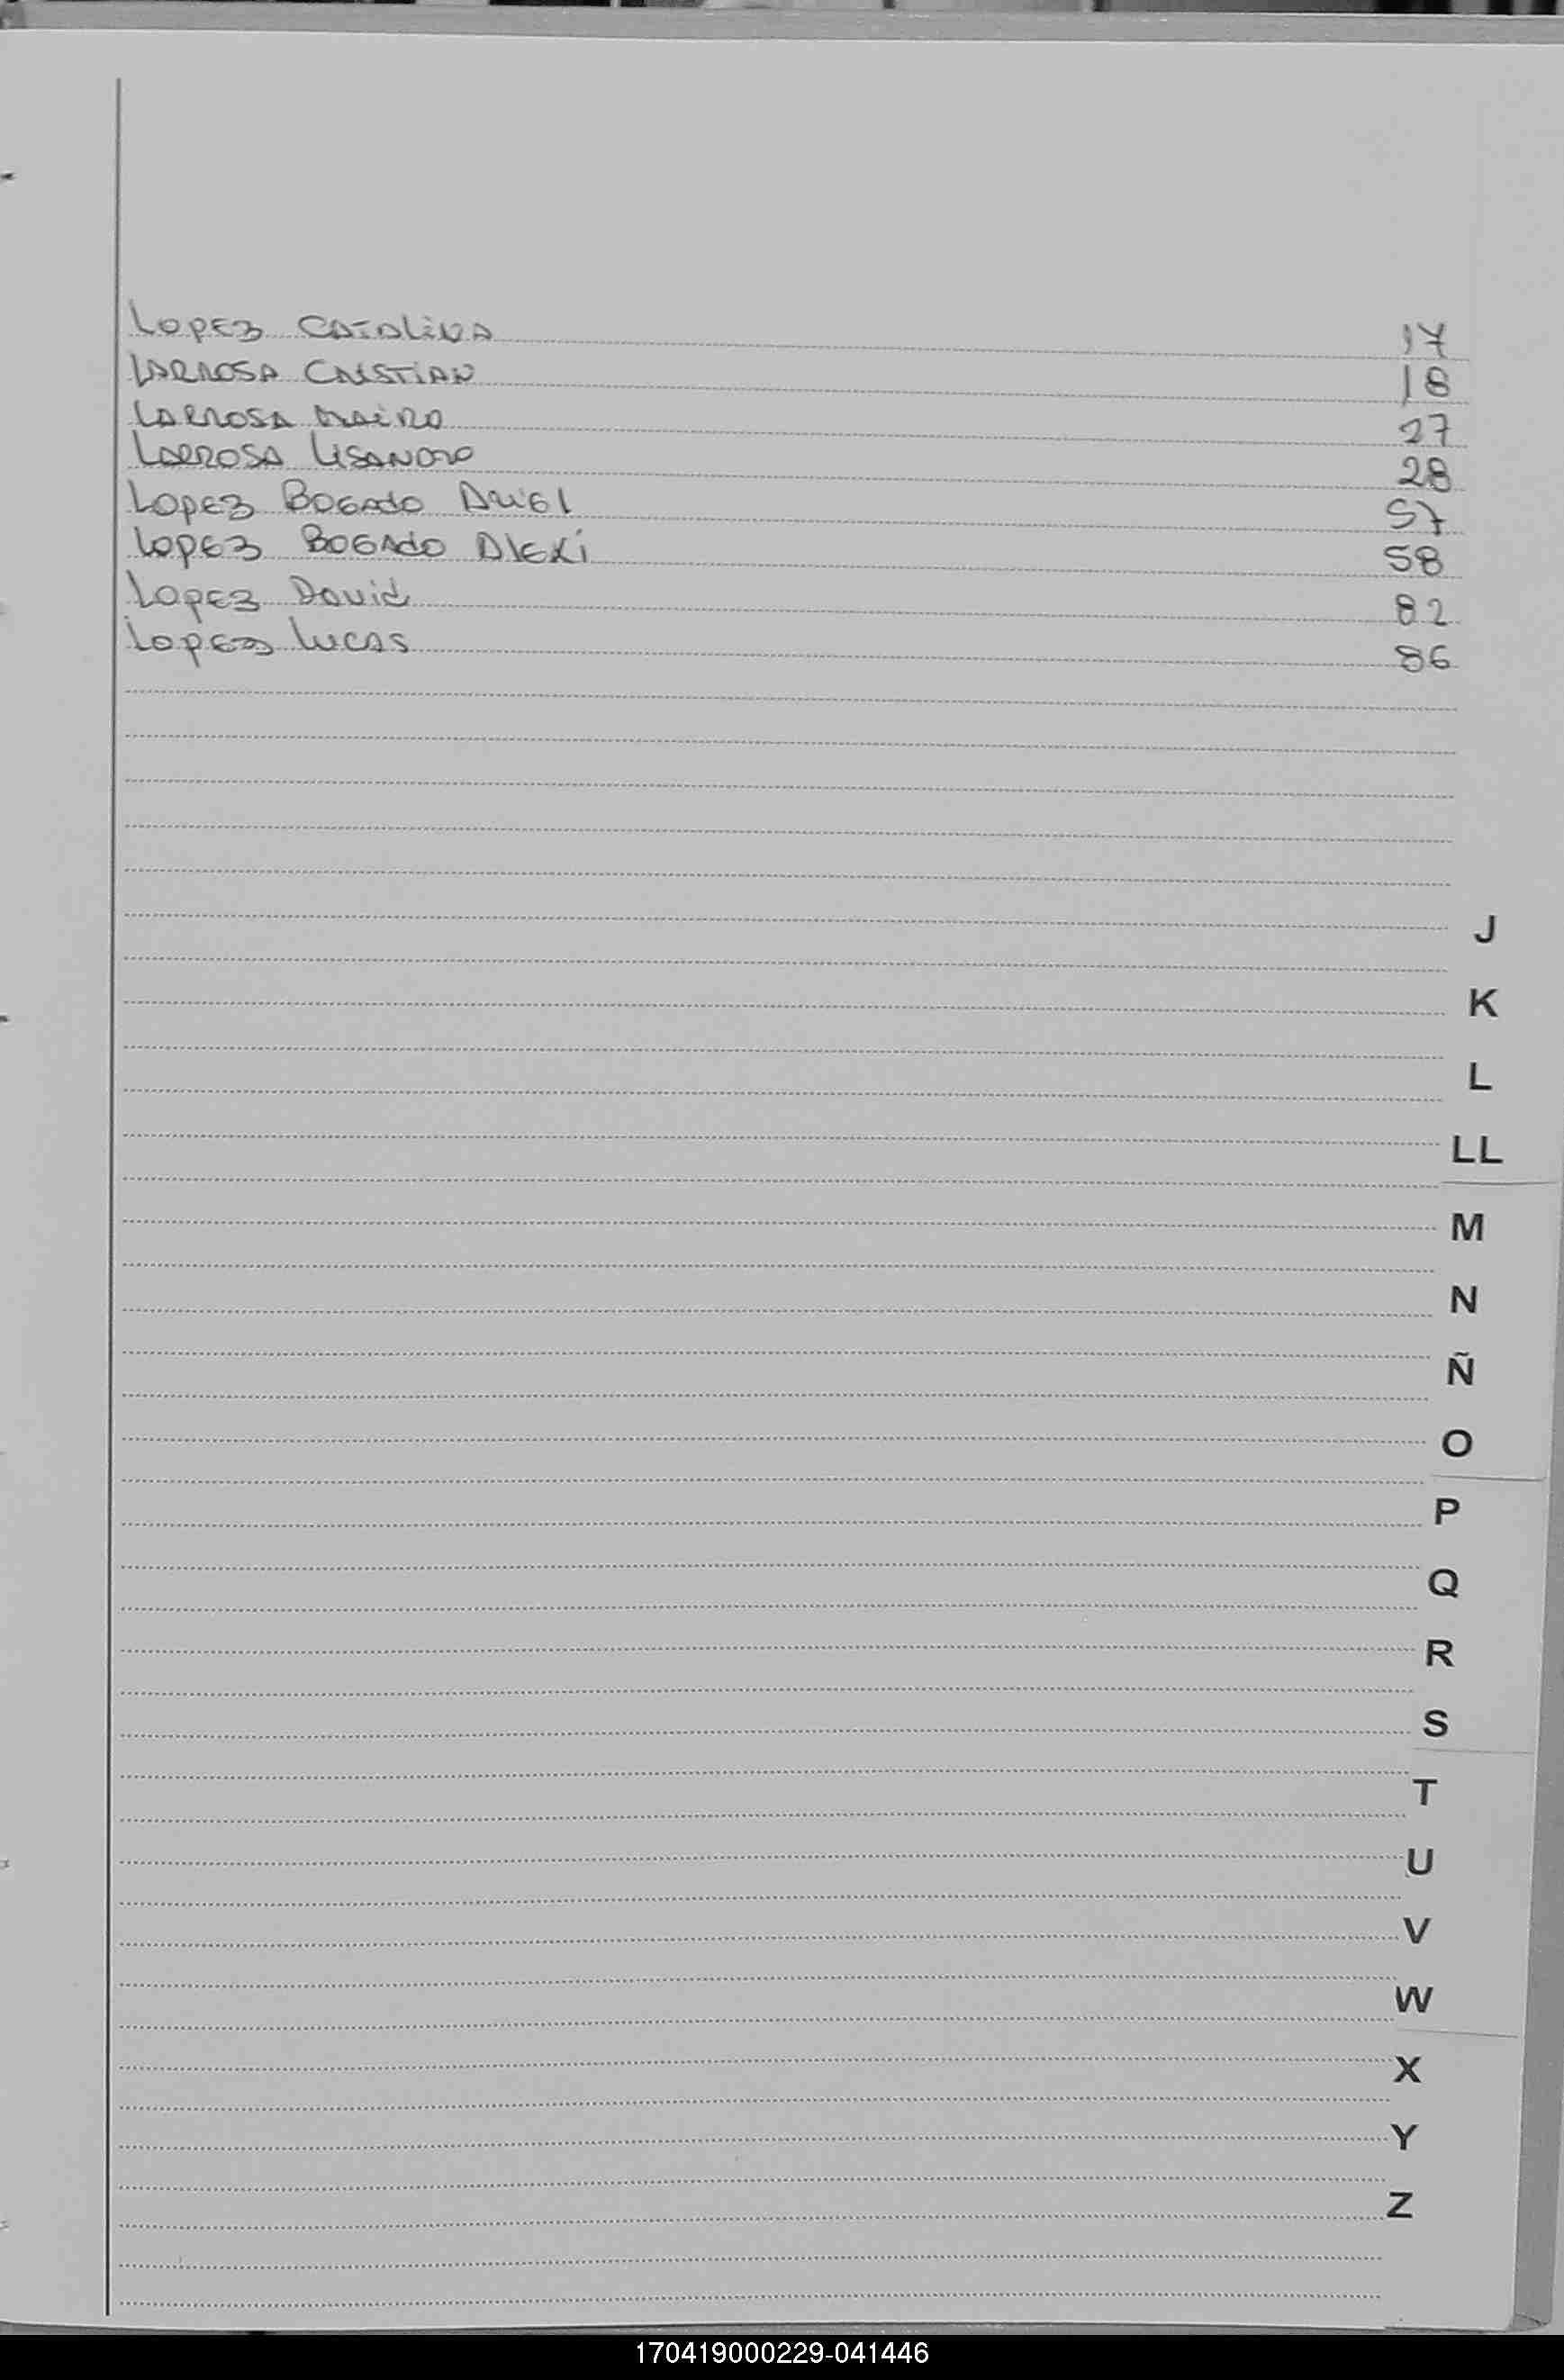 Lopez Catalina 17
Larrosa Cristian 18
Larrosa 27
Larrosa Lisandro 28
Lopez Bogado Ariel 57
Lopez Bogado Alexi 58
Lopez David 82
Lopez Lucas 86
J
K
L
LL
M
N
Ñ
O
P
Q
R
S
T
U
V
W
X
Y
Z
170419000229-041446